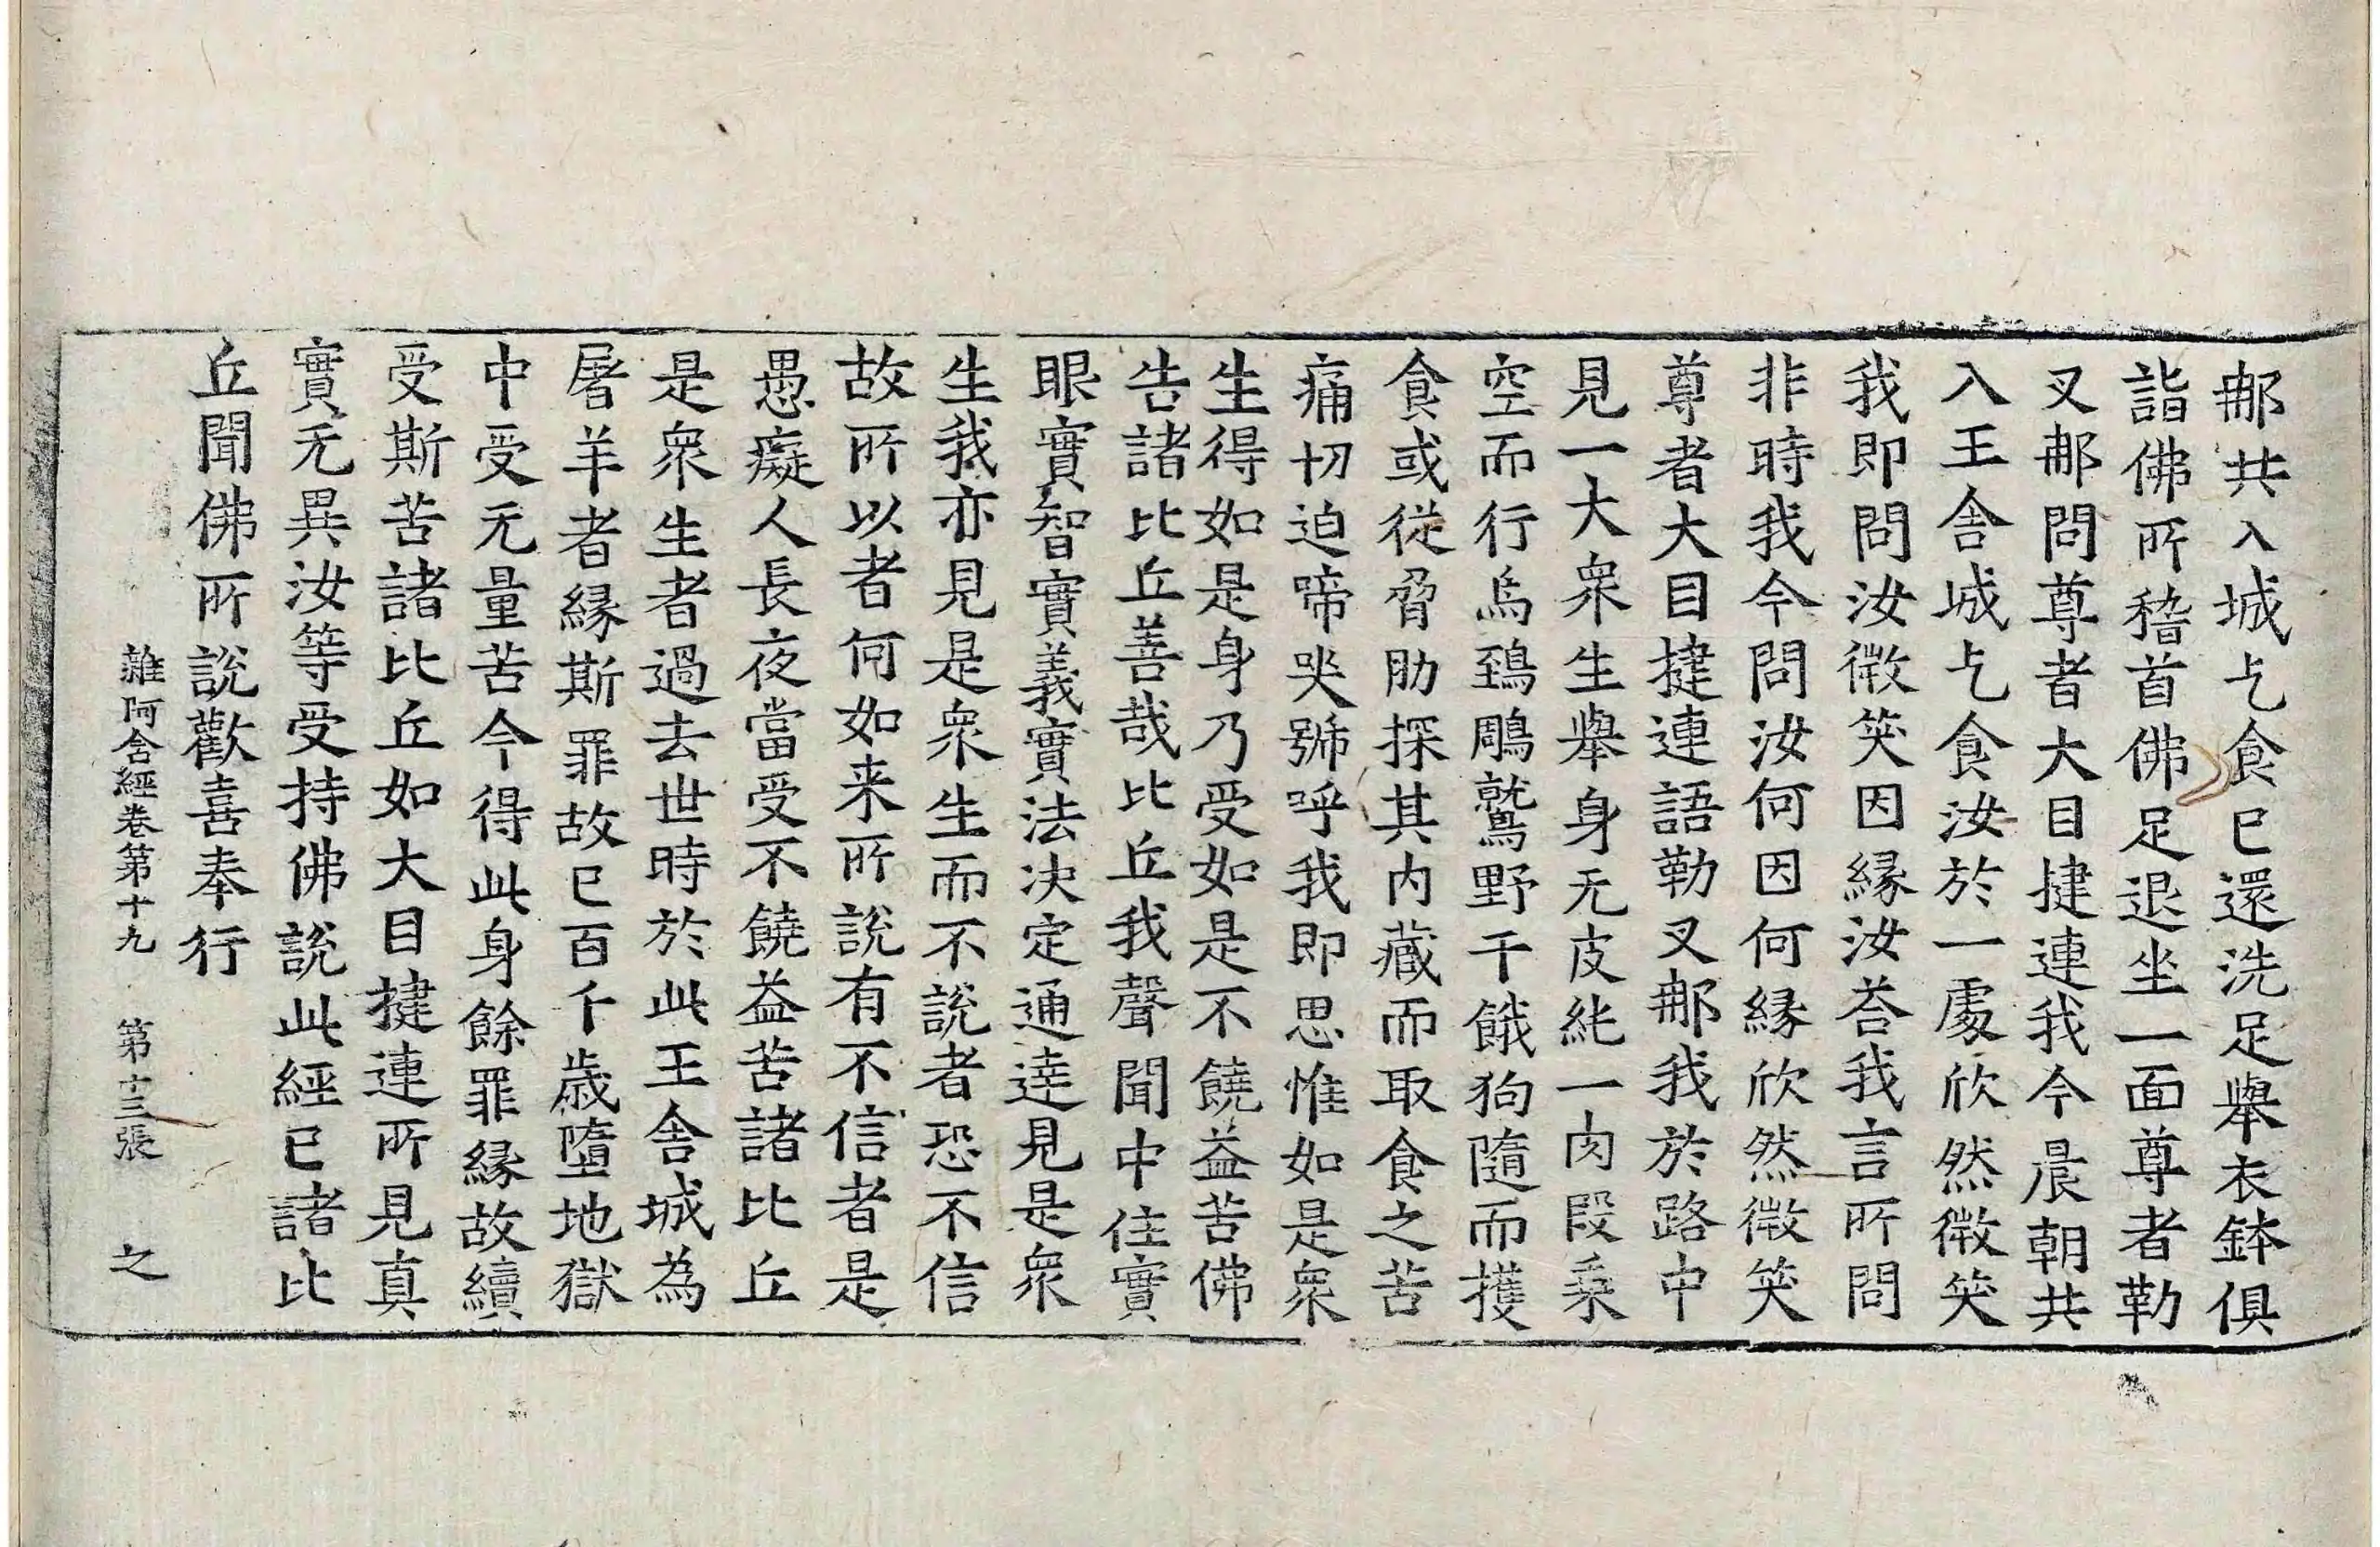 郍共入城乞食已還洗足舉衣鉢俱
詣佛所稽首佛足退坐一面尊者勒
叉郍問尊者大目揵連我今晨朝共
入王舍城乞食汝於一處欣然微笑
我即問汝微笑因緣汝荅我言所問
非時我今問汝何因何緣欣然微笑
尊者大目揵連語勒叉郍我於路中
見一大衆生舉身无皮純一肉段乗
空而行烏鵄鵰鷲野干餓狗隨而攫
食或從脅肋探其内藏而取食之苦
痛切迫啼哭號呼我即思惟如是衆
生得如是身乃受如是不饒益苦佛
告諸比丘善哉比丘我聲聞中住實
眼實智實義實法决定通達見是衆
生我亦見是衆生而不說者恐不信
故所以者何如来所說有不信者是
愚癡人長夜當受不饒益苦諸比丘
是衆生者過去世時於此王舍城為
屠羊者緣斯罪故已百千歲墮地獄
中受无量苦今得此身餘罪緣故續
受斯苦諸比丘如大目揵連所見真
實无異汝等受持佛說此經已諸比
丘聞佛所說歡喜奉行
雜阿含經卷第十九 第十三張 之